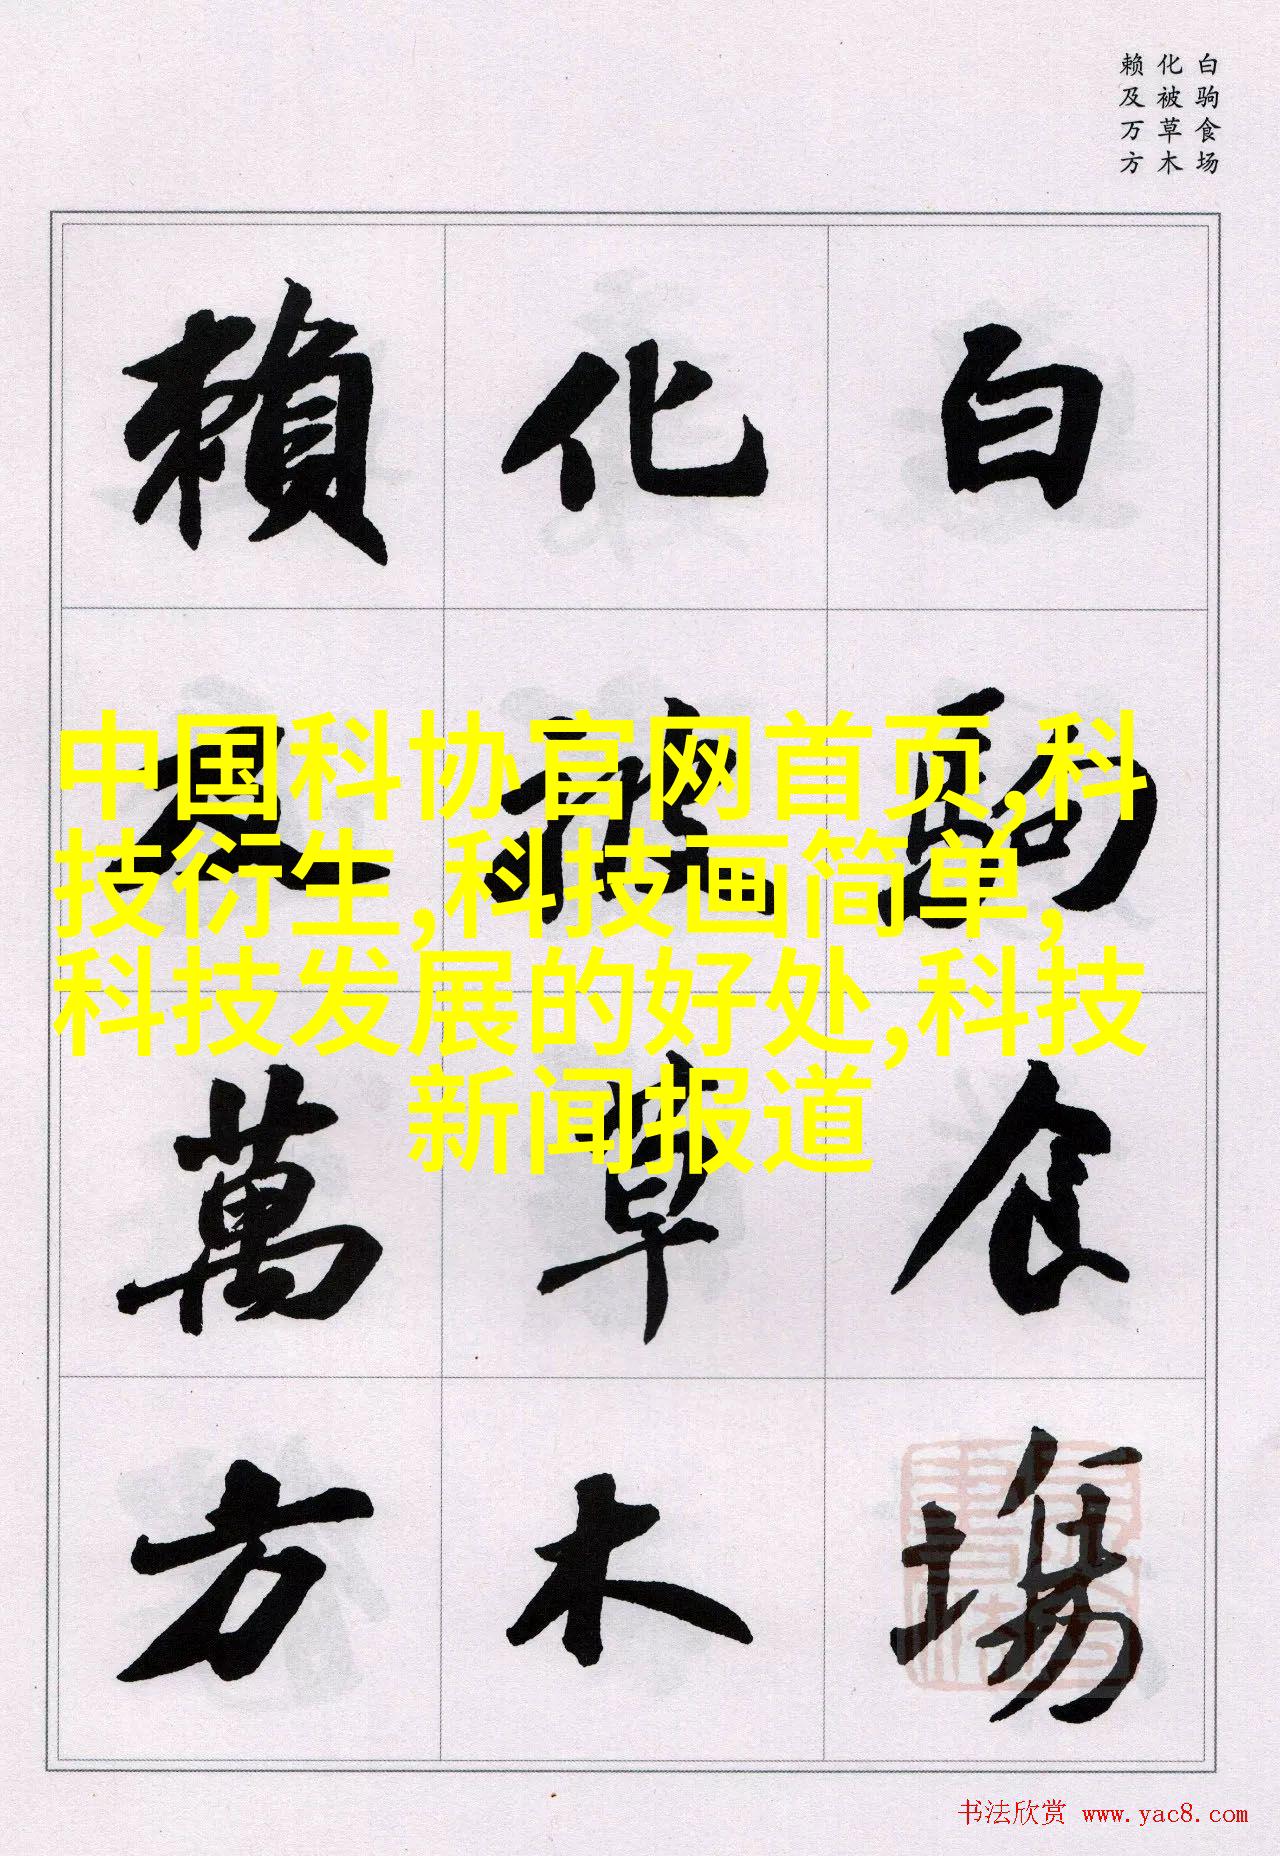 白驹食场
化被草木
赖及万方
白駒食場
化被草木
賴及萬方
中国科协官网首页,科
技衍生,科技画简单,
科技发展的好处,科技
新闻报道
书法欣赏 www.yac8.com